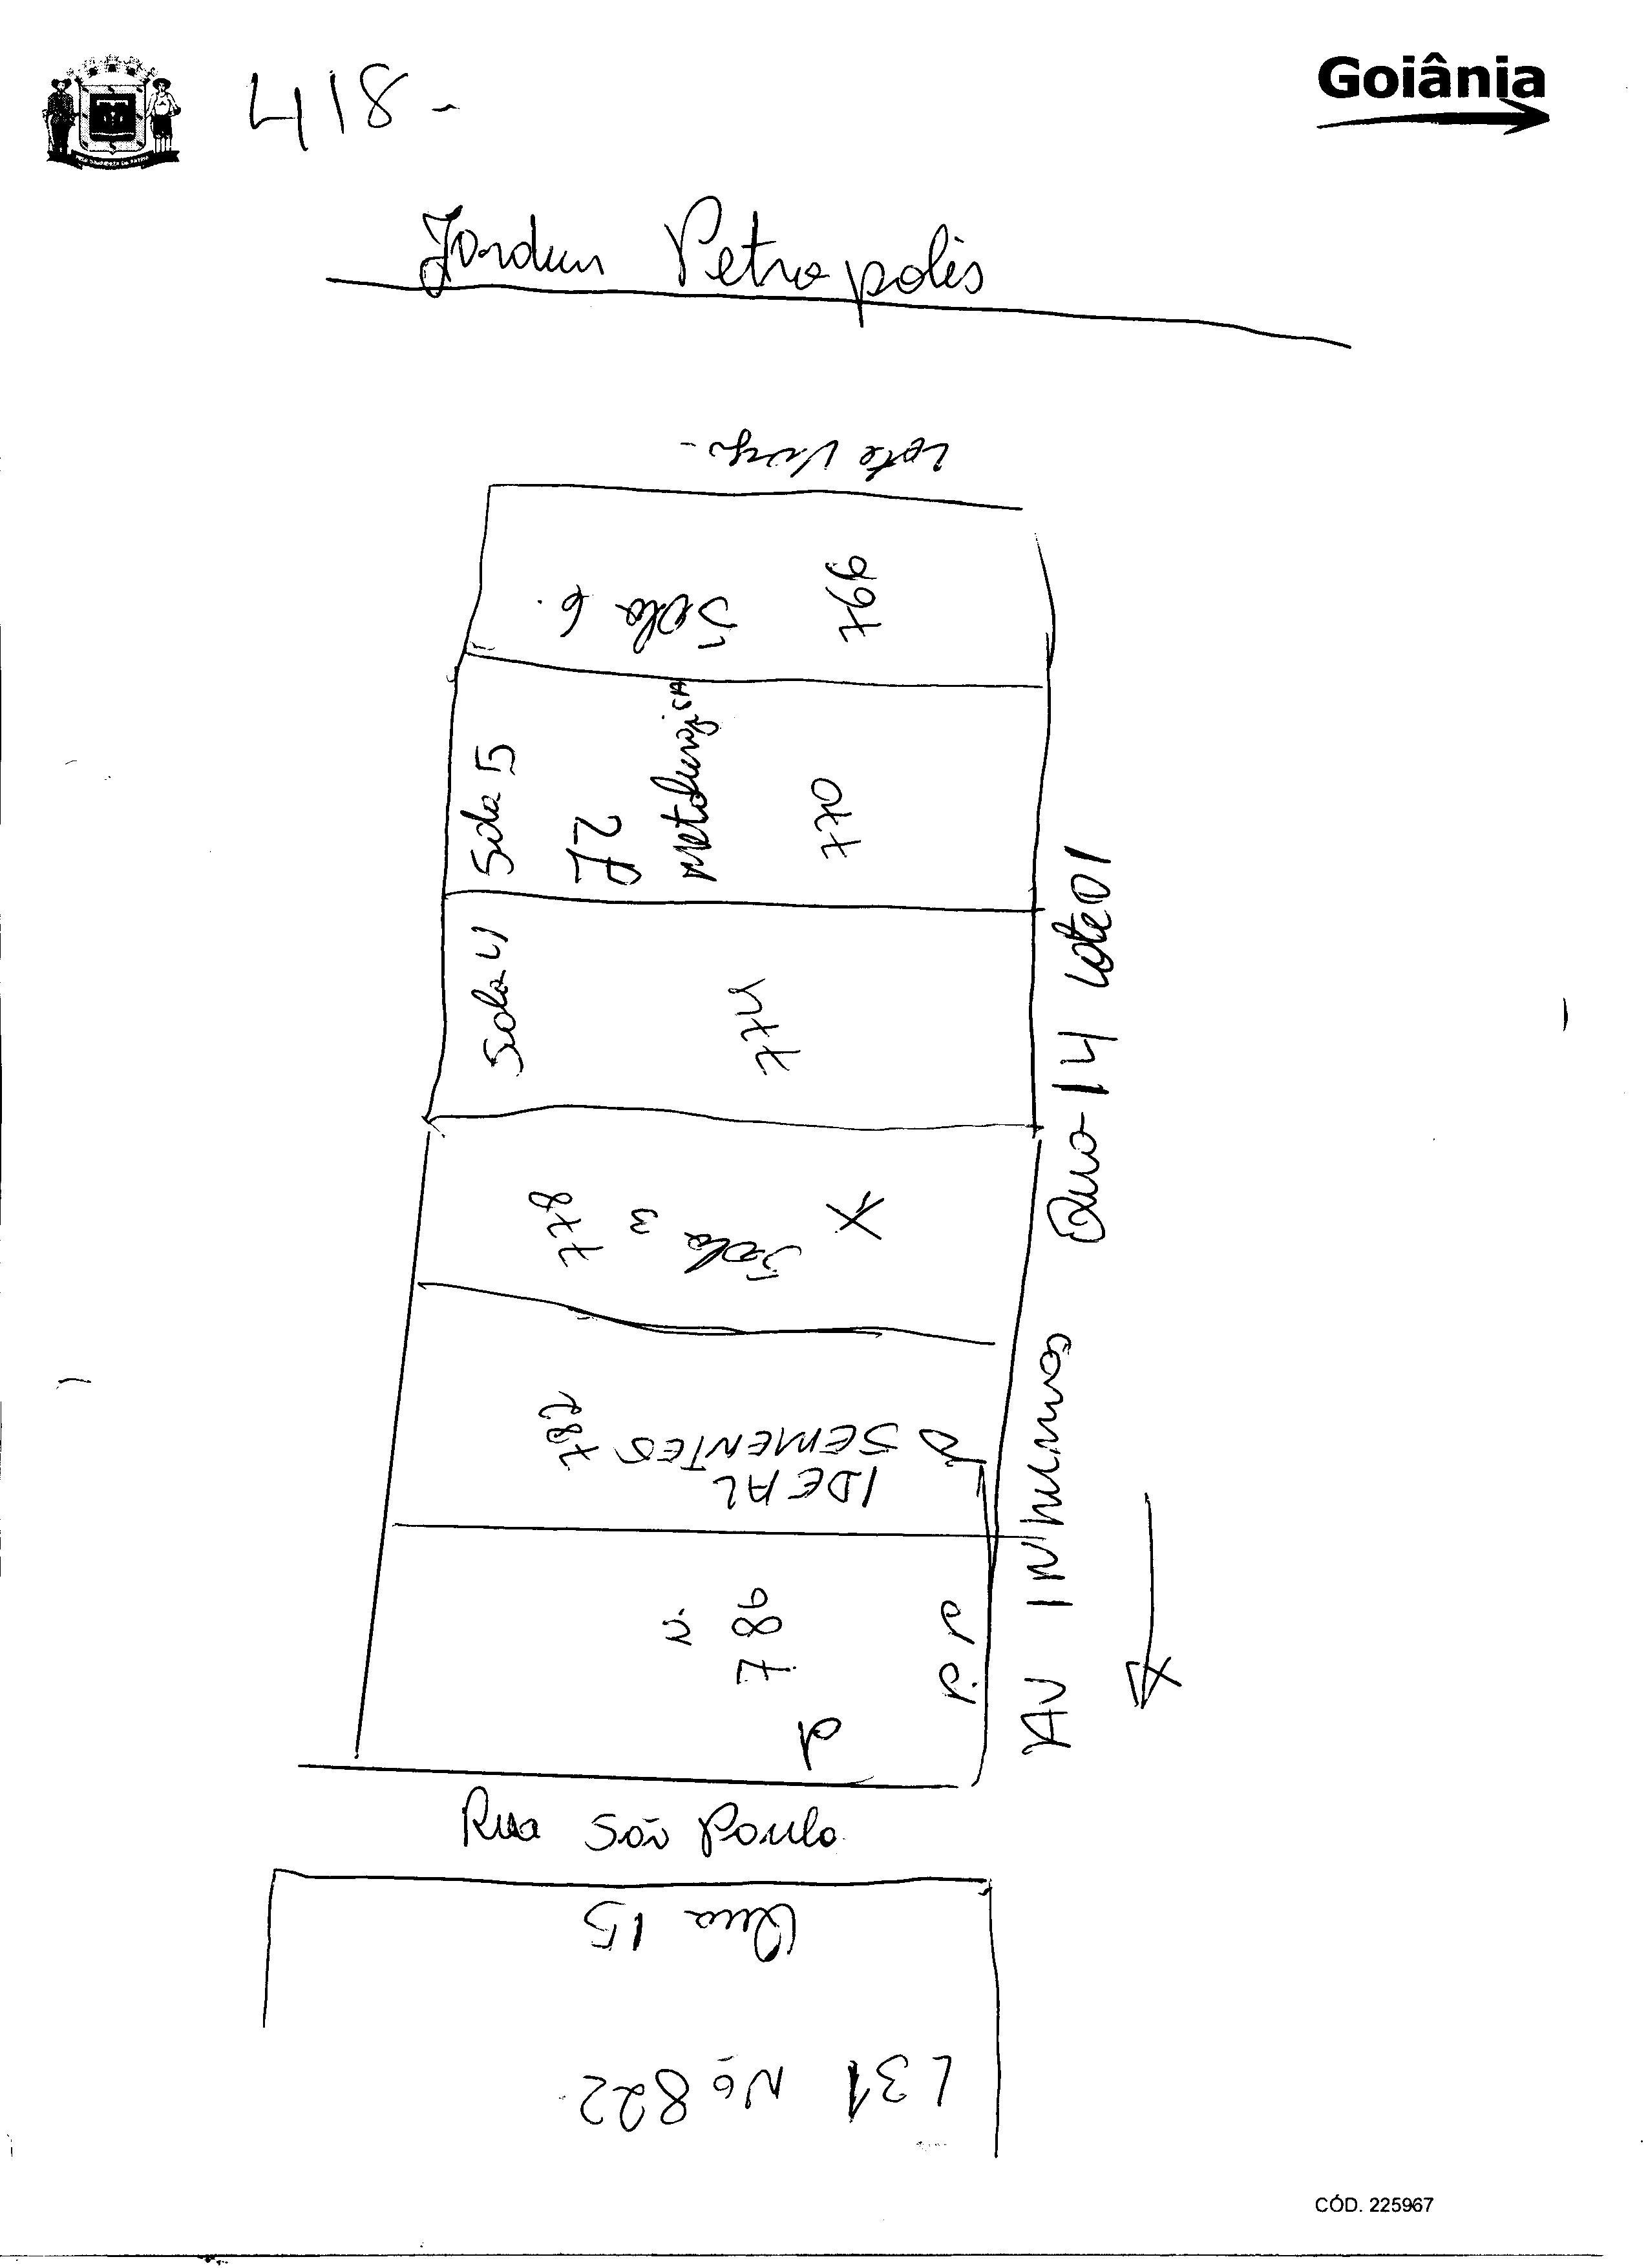 418-
Goiânia
Jardim Petropolis
Lote Vago -
766
Sala 6.
Sala 5
JP
Metalurgica
770
Sala 4
774
Qua 14 Lote 01
X
Sala 3
778
IDEAL
SEMENTES
782
AV INHUMAS
786
P.P
Rua São Paulo
Qua 15
L31 Nº 822
CÓD. 225967